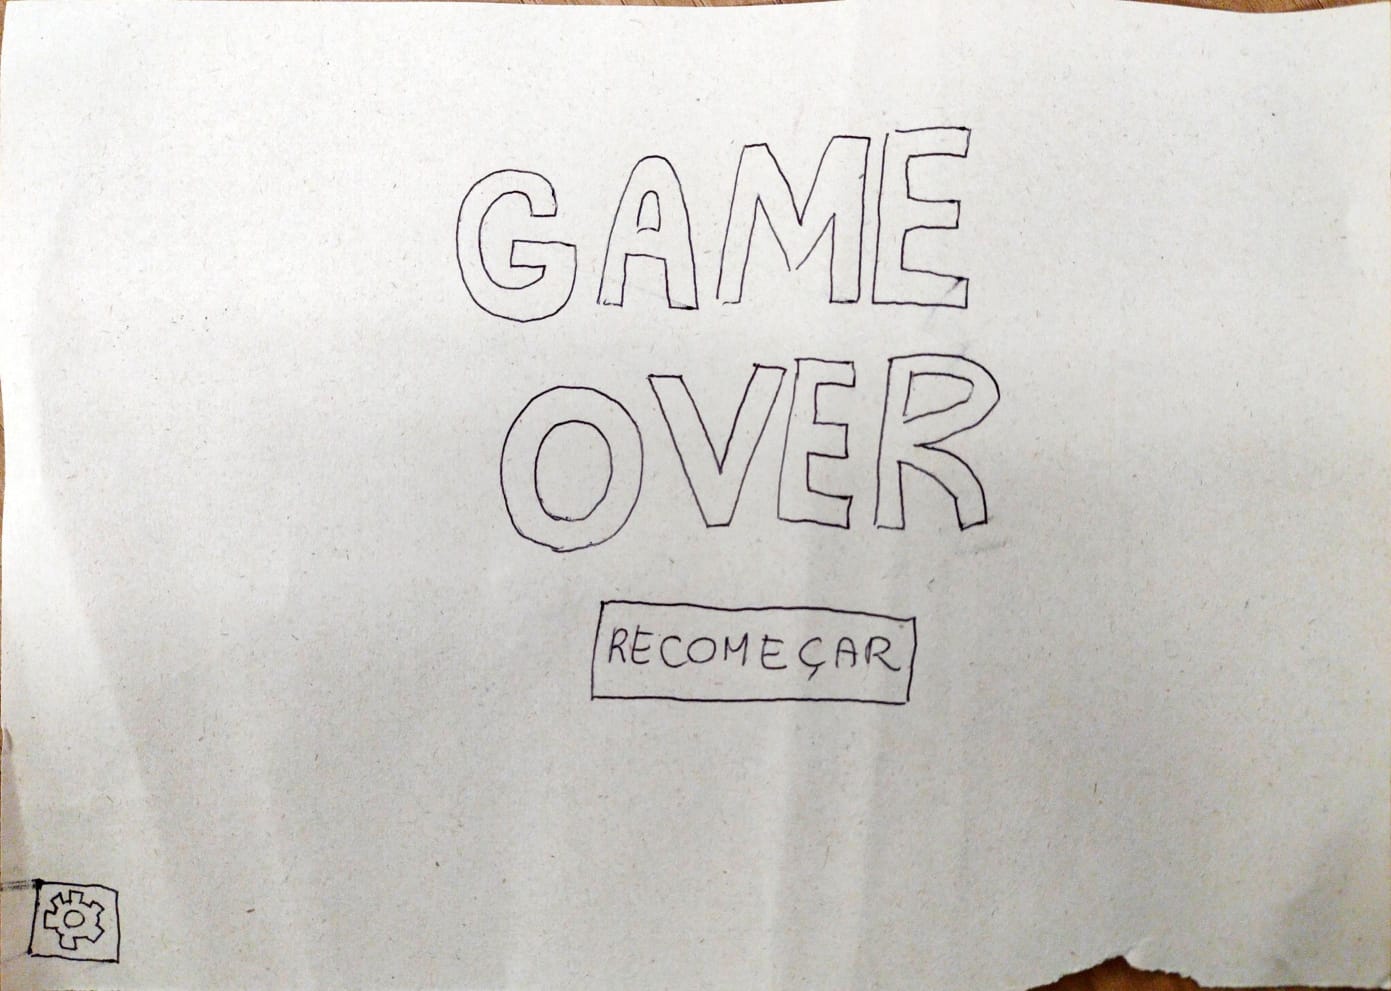 GAME
OVER
RECOMEÇAR